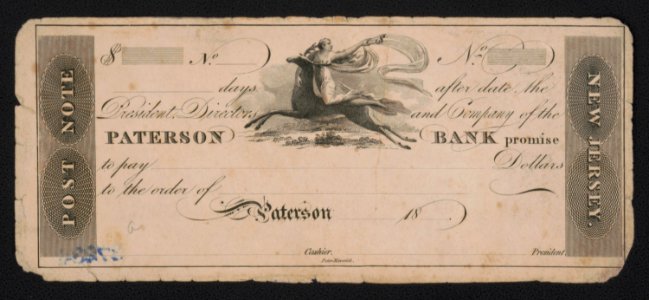 POST NOTE
$ No. No.
days after date, the
President, Directors and Company of the
PATERSON BANK promise
to pay Dollars
to the order of
Paterson 18
Cashier. President.
NEW JERSEY.